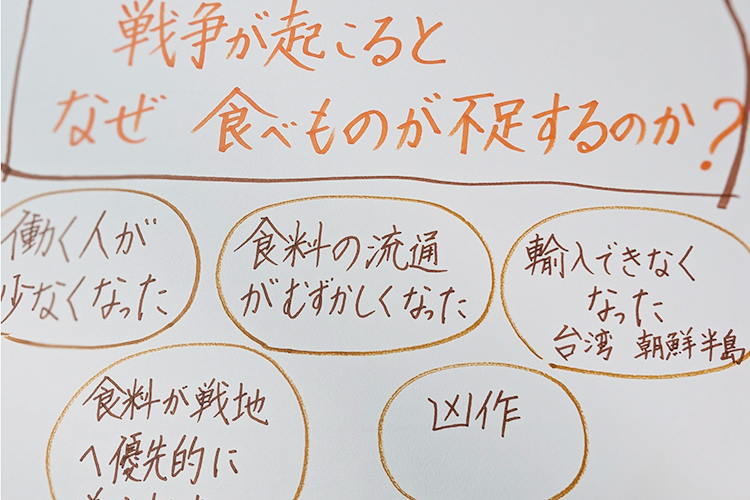 戦争が起こると
なぜ 食べものが不足するのか?
働く人が
少なくなった
食料の流通
がむずかしくなった
輸入できなく
なった
台湾 朝鮮半島
食料が戦地
へ優先的に
凶作